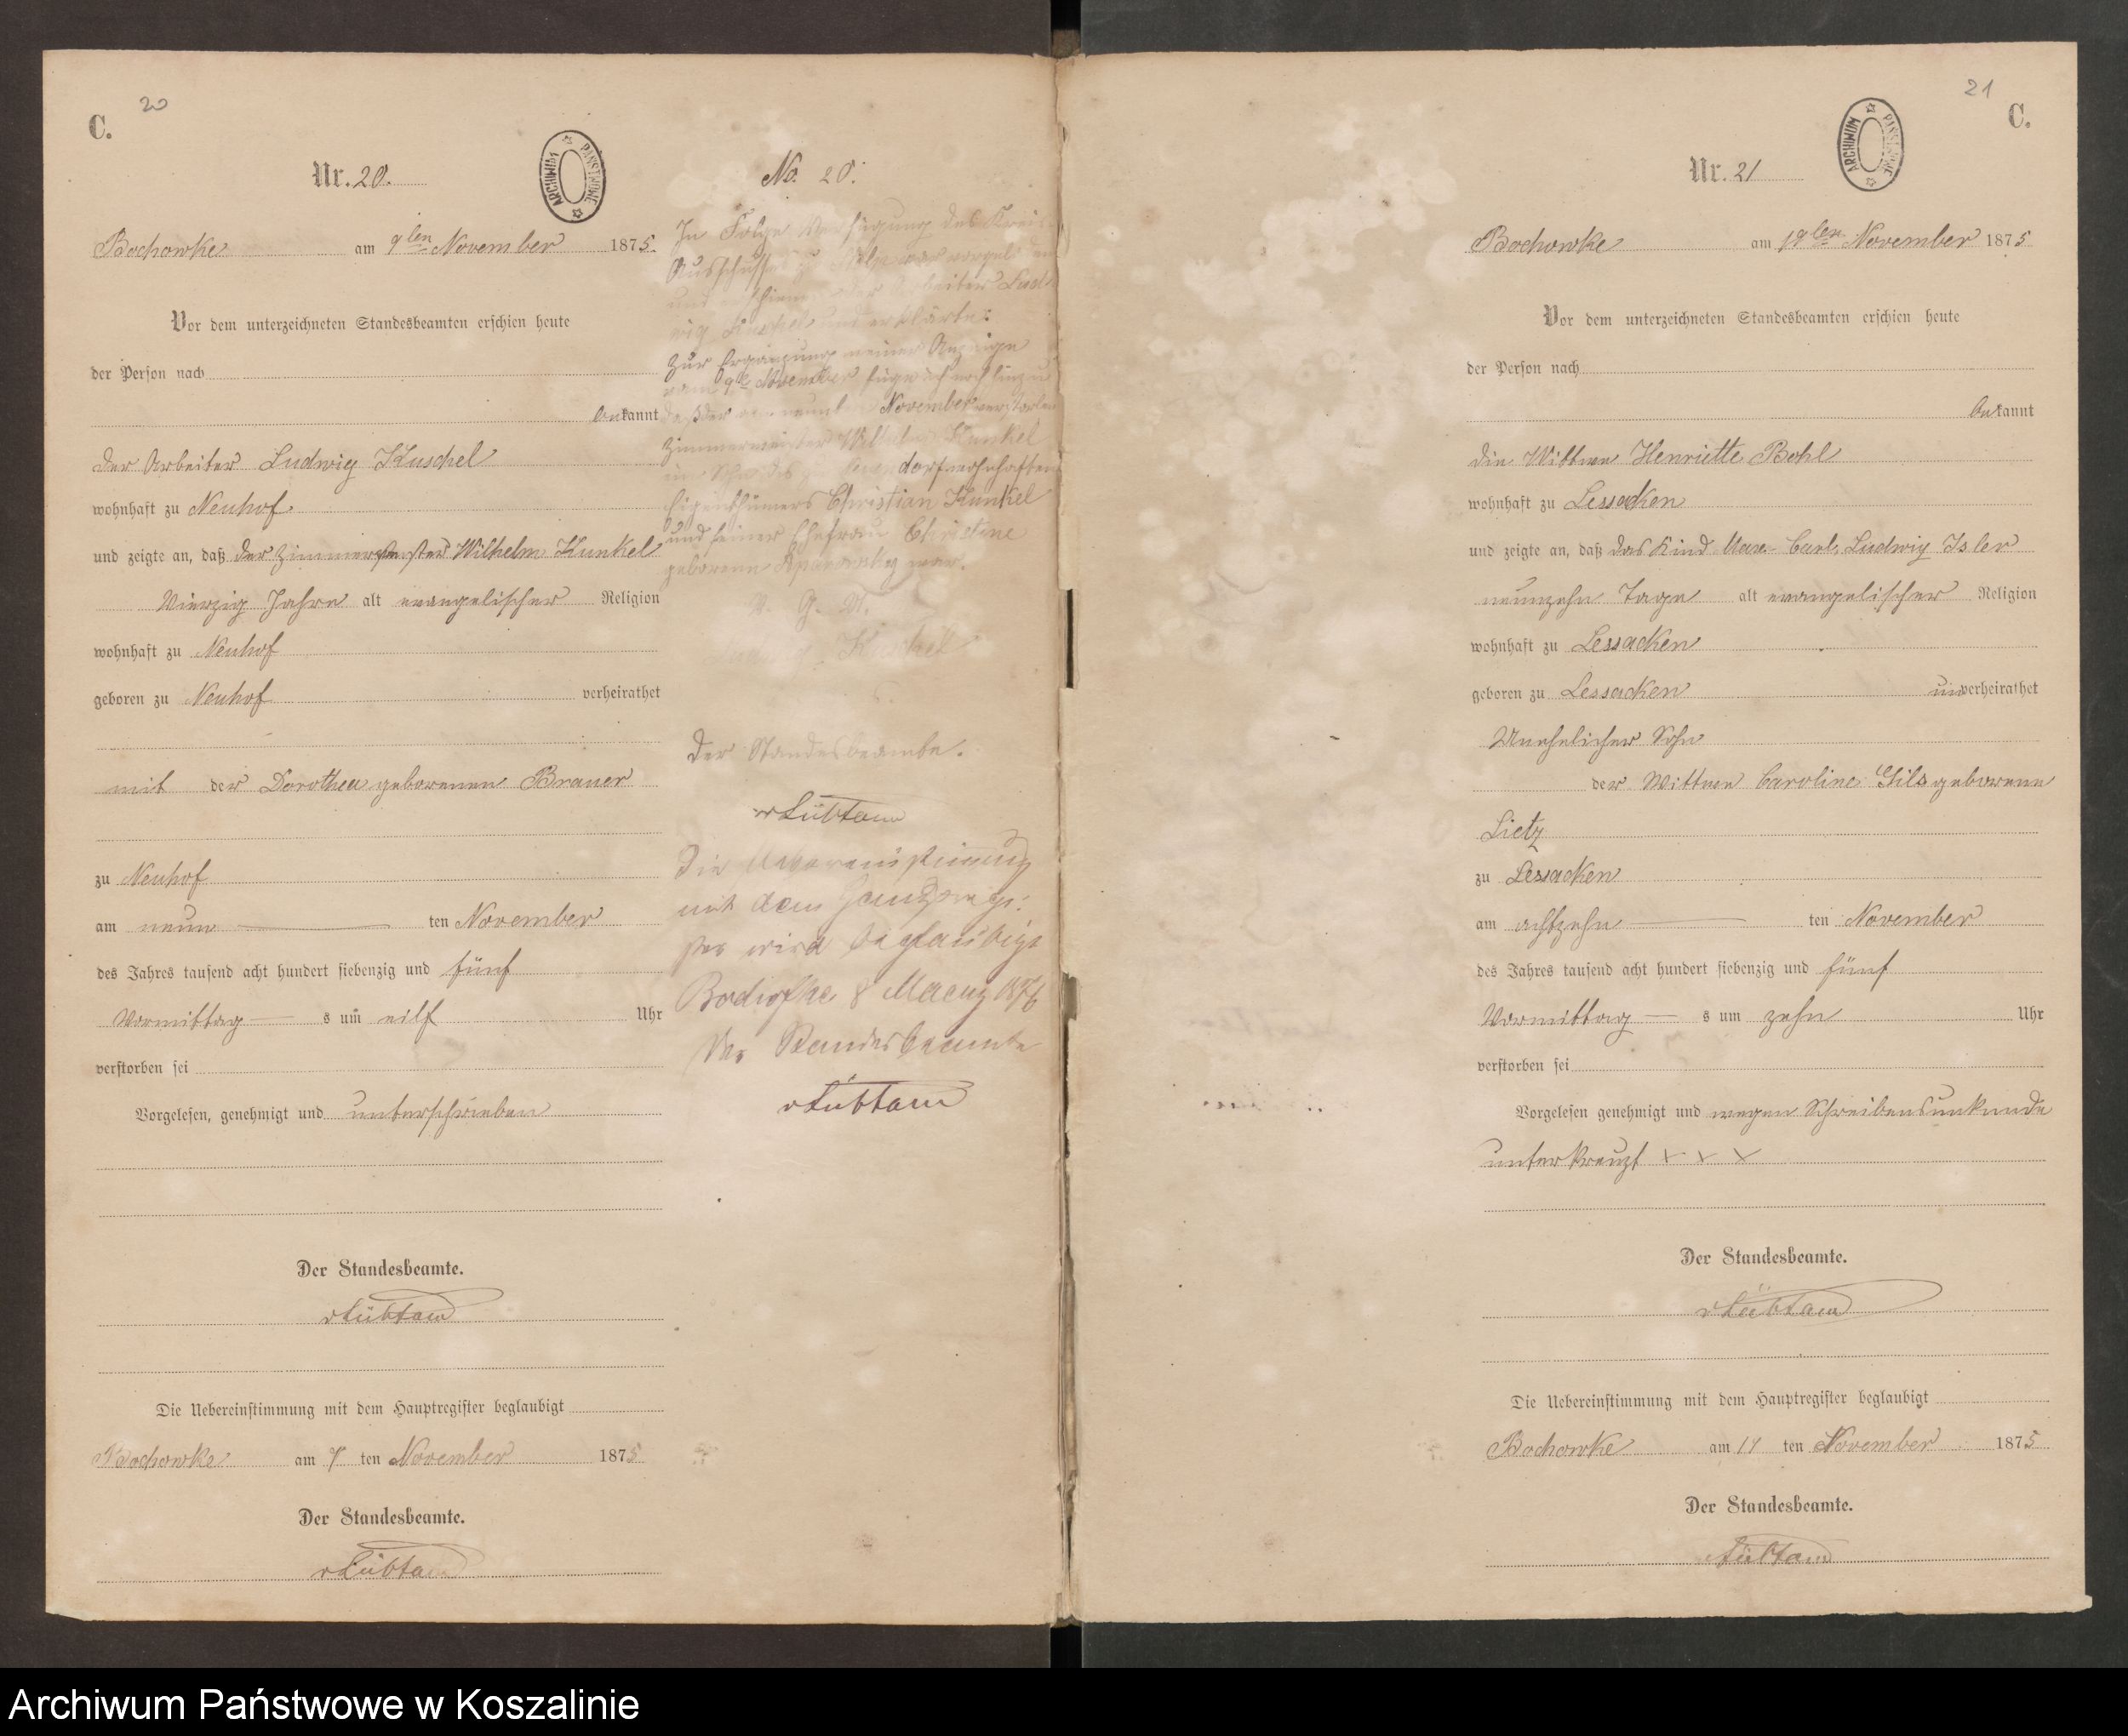 20
C.
Nr. 20.
ARCHIWUM PAŃSTWOWE
Bochowke am 9ten November 1875.
Vor dem unterzeichneten Standesbeamten erschien heute
der Person nach
bekannt
der Arbeiter Ludwig Kuschel
wohnhaft zu Neuhof
und zeigte an, daß der Zimmermeister Wilhelm Kunkel
Vierzig Jahre alt evangelischer Religion
wohnhaft zu Neuhof
geboren zu Neuhof verheirathet
mit der Dorothea geborenen Brauer
zu Neuhof
am neun ten November
des Jahres tausend acht hundert siebenzig und fünf
Vormittag s um eilf Uhr
verstorben sei
Vorgelesen, genehmigt und unterschrieben
Der Standesbeamte.
vLübtow
Die Uebereinstimmung mit dem Hauptregister beglaubigt
Bochowke am 9 ten November 1875
Der Standesbeamte.
vLübtow
No. 20.
In Folge Verfügung des Kreis
Ausschusses zu Stolp
und erschien der Arbeiter Lud
wig Kuschel und erklärte:
Zur Ergänzung meiner Anzeige
vom 9ten November füge ich noch hinzu
daß der am neunten November verstorbene
Zimmermeister Wilhelm Kunkel
ein Sohn des dorf wohnhaften
Eigenthümers Christian Kunkel
und seiner Ehefrau Christine
geborene war.
V. G. U.
Ludwig Kuschel
Der Standesbeamte.
vLübtow
Die Uebereinstimmung
mit dem Hauptregi-
ster wird beglaubigt
8 Maerz 1876
Der Standesbeamte
vLübtow
21
C.
Nr. 21
ARCHIWUM PAŃSTWOWE
Bochowke am 19ten November 1875
Vor dem unterzeichneten Standesbeamten erschien heute
der Person nach
bekannt
die Wittwe Henriette Bohl
wohnhaft zu Lessacken
und zeigte an, daß das Kind Max Carl Ludwig Isler
neunzehn Tage alt evangelischer Religion
wohnhaft zu Lessacken
geboren zu Lessacken unverheirathet
Unehelicher Sohn
der Wittwe Caroline geborene
Lietz
zu Lessacken
am achtzehn ten November
des Jahres tausend acht hundert siebenzig und fünf
Vormittag s um zehn Uhr
verstorben sei
Vorgelesen genehmigt und wegen Schreibensunkunde
unterkreuzt x x x
Der Standesbeamte.
vLübtow
Die Uebereinstimmung mit dem Hauptregister beglaubigt
Bochowke am 19 ten November 1875
Der Standesbeamte.
vLübtow
Archiwum Państwowe w Koszalinie